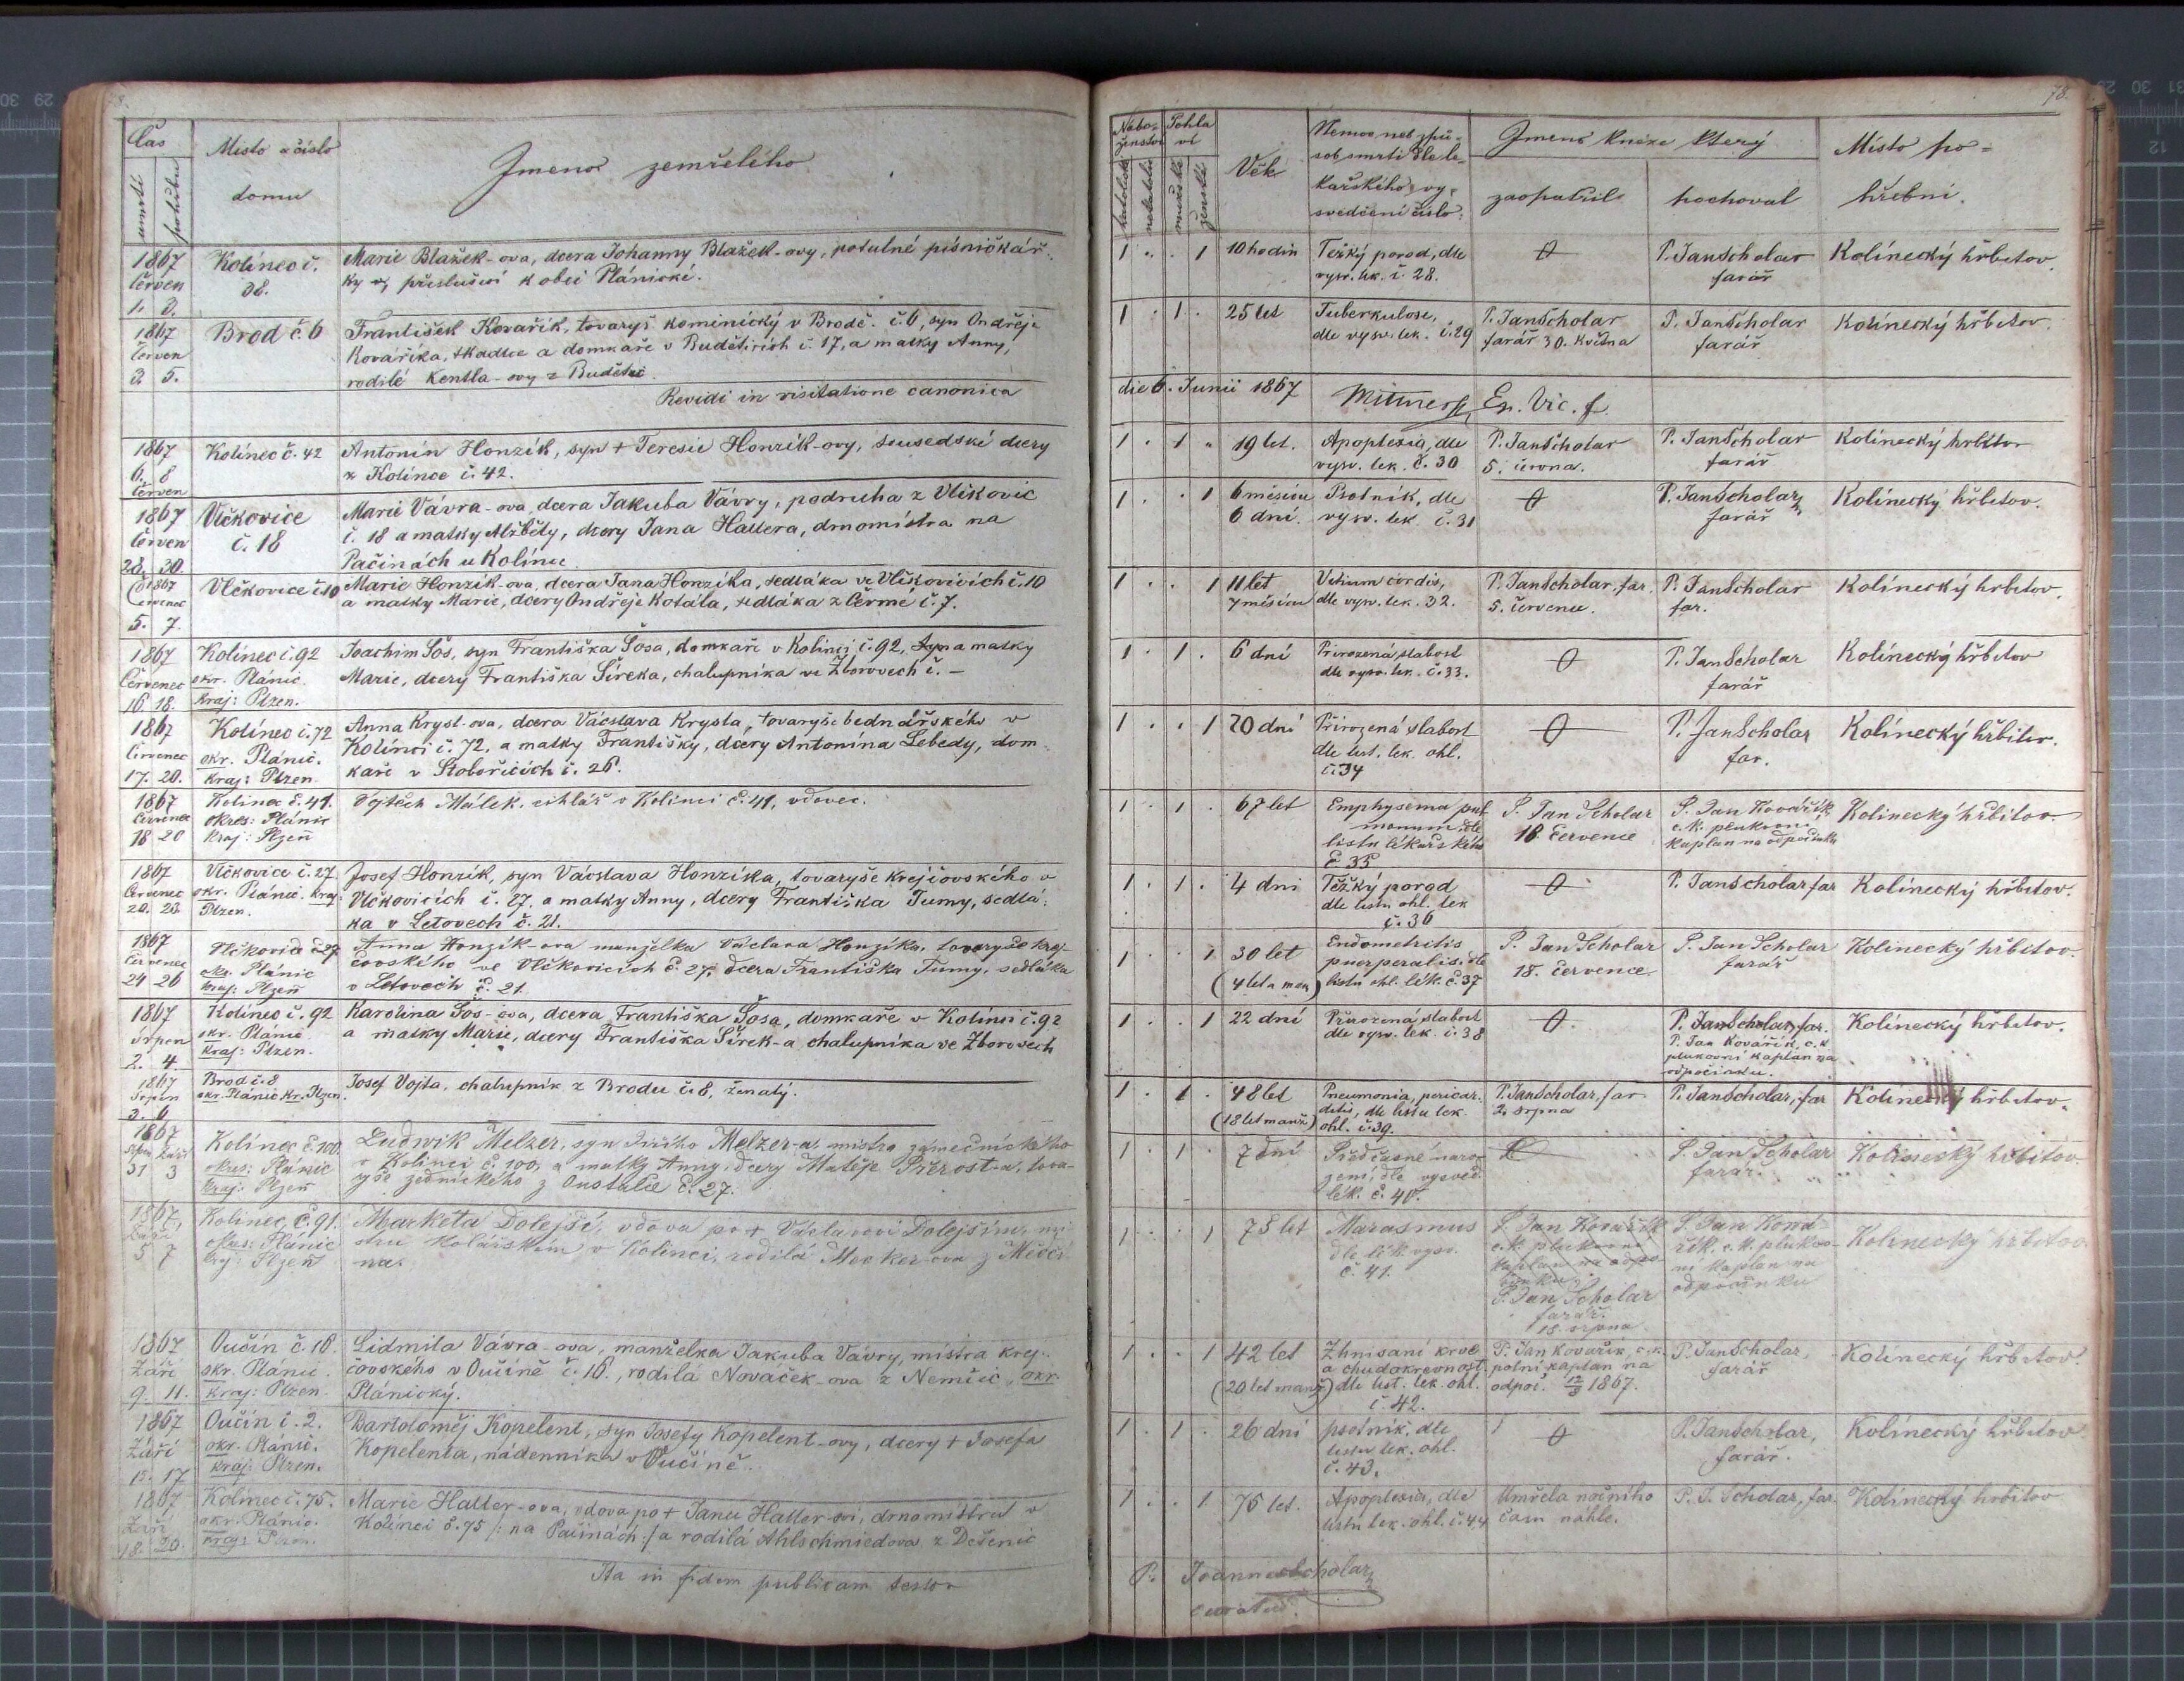 78
Čas
úmrtí
pohřbu
Místo a číslo
domu
Jmeno zemřelého
1867
Červen
1. 3.
Kolínec č.
38.
Marie Blažek-ova, dcera Johanny Blažek-ovy, potulné písničkář-
ky příslušící k obci Plánické.
1867
Červen
3. 5.
Brod č. 6
František Kovařík, tovaryš kominický v Brodě č. 6, syn Ondřeje
Kovaříka, tkadlce a domkaře v Budětících č. 17, a matky Anny,
rodilé Kentla-ovy z Budětic
Revidi in visitatione canonica
1867
6. 8
červen
Kolínec č. 42
Antonín Honzík, syn + Teresie Honzík-ovy, sousedské dcery
z Kolínce č. 42.
1867
červen
28. 30.
Vlčkovice
č. 18
Marie Vávra-ova, dcera Jakuba Vávry, podruha z Vlčkovic
č. 18 a matky Alžběty, dcery Jana Hallera, drnomistra na
Pačinách u Kolínce
1867
Červenec
5. 7.
Vlčkovice č. 10
Marie Honzík-ova, dcera Jana Honzíka, sedláka ve Vlčkovicích č. 10
a matky Marie, dcery Ondřeje Kotála, sedláka z Čermé č. 7.
1867
Červenec
16. 18.
Kolínec č. 92
okr. Plánic.
Kraj: Plzen.
Joachim Šos, syn Františka Šosa, domkaře v Kolinci č. 92, a matky
Marie, dcery Františka Šireka, chalupníka ve Zborovech č. —
1867
Červenec
17. 20.
Kolínec č. 72
okr. Plánic.
Kraj: Plzen.
Anna Kryst-ova, dcera Václava Krysta, tovaryše bednářského v
Kolínci č. 72, a matky Františky, dcery Antonína Lebedy, dom-
kaře v Stobořicích č. 26.
1867
Červenec
18 20
Kolinec č. 41.
okres: Plánic
Kraj: Plzeň
Vojtěch Málek, cihlář v Kolinci č. 41, vdovec.
1867
Červenec
20. 23.
Vlčkovice č. 27.
okr. Plánic. kraj
Plzen.
Josef Honzík, syn Václava Honzíka, tovaryše krejčovského v
Vlčkovicích č. 27. a matky Anny, dcery Františka Tumy, sedlá-
ka v Letovech č. 21.
1867
Červenec
24 26
Vlčkovice č. 27
okr. Plánic
kraj: Plzeň
Anna Honzík-ova manželka Václava Honzíka, tovaryše krej-
čovského ve Vlčkovicích č. 27, dcera Františka Tumy, sedláka
v Letovech č. 21.
1867
srpen
2. 4.
Kolínec č. 92
okr. Plánic
Kraj: Plzen.
Karolina Šos-ova, dcera Františka Šosa, domkaře v Kolínci č. 92
a matky Marie, dcery Františka Širek-a chalupníka ve Zborovech
1867
Srpen
3. 6
Brod č. 8
okr. Plánic kr. Plzen.
Josef Vojta, chalupník z Brodu č. 8, ženatý.
1867
Srpen Září
31 3
Kolínec č. 100.
okres: Plánic
kraj: Plzeň
Ludwik Melzer, syn Jiřího Melzer-a, mistra zámečnického
v Kolinci č. 100, a matky Anny, dcery Matěje Přerost-a, tova-
ryše zednického z č. 27.
1867
Září
5 7
Kolinec, č. 91.
okres: Plánic
kraj: Plzeň
Markéta Dolejší, vdova po + Václavovi Dolejším, mi-
stru kolářském v Kolinci, rodilá z
1867
Září
9. 11.
Oučín č. 16.
okr. Plánic.
kraj: Plzen.
Lidmila Vávra-ova, manželka Jakuba Vávry, mistra krej-
čovského v Oučíně č. 16, rodilá Novaček-ova z Nemčic, okr.
Plánický.
1867
Září
15. 17
Oučín č. 2.
okr. Plánic.
kraj: Plzen.
Bartoloměj Kopelent, syn Josefy Kopelent-ovy, dcery + Josefa
Kopelenta, nádenníka v Oučíně.
1867
Září
18. 20.
Kolínec č. 75.
okr. Plánic.
kraj: Plzen.
Marie Haller-ova, vdova po + Janu Haller-ovi, drnomistru v
Kolínci č. 75 /: na Pačinách :/ a rodilá Ahlschmiedova z Dešenic
Ita in fidem publicam testor
Nábo-
ženství
katolické
nekatolické
Pohla
ví
mužské
ženské
Věk
Nemoc neb způ-
sob smrti dle le-
kařského vy-
svedčení číslo:
Jmeno kněze který
zaopatřil
pochoval
Místo po-
hřební.
1 . . 1
10 hodin
Težký porod, dle
vysv. lek. č. 28.
0
P. Jan Scholar
farář
Kolínecký hřbitov.
1 . 1 .
25 let
Tuberkulose,
dle vysv. lek. č. 29
P. Jan Scholar
farář 30. Května
P. Jan Scholar
farář
Kolínecký hřbitov.
die 6. Junii 1867 Ep. Vic. f.
1 . 1 .
19 let.
Apoplexia, dle
vysv. lek. č. 30
P. Jan Scholar
5. června.
P. Jan Scholar
farář
Kolínecký hřbitov
1 . . 1
6 měsíců
6 dní.
Psotník, dle
vysv. lek č. 31
0
P. Jan Scholar
farář
Kolínecký hřbitov.
1 . . 1
11 let
7 měsíců
Vitium cordis,
dle vysv. lek. 32.
P. Jan Scholar, far.
5. července.
P. Jan Scholar
far.
Kolínecký hřbitov.
1 . 1 .
6 dní
Přirozená slabost
dle vysv. lek. č. 33.
0
P. Jan Scholar
farář
Kolínecký hřbitov
1 . . 1
20 dní
Přirozená slabost
dle list. lek. ohl.
č. 34
0
P. Jan Scholar
far.
Kolínecký hřbitov.
1 . 1 .
67 let
Emphysema pul
monum, dle
listu lékařského
č. 35
P. Jan Scholar
18. Července
P. Jan Kovářík
c. k. plukovní
kaplan na odpočinku
Kolinecký hřbitov.
1 . 1 .
4 dni
Těžký porod
dle listu ohl. lek
č. 36
0
P. Jan Scholar far
Kolínecký hřbitov.
1 . . 1
30 let
(4 leta man.)
Endometritis
puerperalis, dle
listu ohl. lék. č. 37
P. Jan Scholar
18. července
P. Jan Scholar
farář
Kolinecký hřbitov.
1 . . 1
22 dní
Přirozená slabost
dle vysv. lek. č. 38
0.
P. Jan Scholar, far.
P. Jan Kovářík, c. k.
plukovní kaplan na
odpočinku.
Kolínecký hřbitov.
1 . 1 .
48 let
(18 let manž)
Pneumonia, pericar-
ditis, dle listu lek.
ohl. č. 39.
P. Jan Scholar, far
2. srpna
P. Jan Scholar, far
Kolínecký hřbitov.
1 . 1 .
7 dní
Předčasné naro-
zení, dle vysvěd.
lék. č. 40.
P. Jan Scholar
farář.
Kolinecký hřbitov.
1 . . 1
75 let
Marasmus
dle lék. vysv.
č. 41.
P. Jan Kovářík
c. k. plukovní
kaplan na odpo-
činku
P. Jan Scholar
farář.
18. srpna
P. JanKová-
řík, c. k. plukov-
ní kaplan na
odpočinku
Kolinecký hřbitov.
1 . . 1
42 let
(20 let manž)
Zhnisaní krve
a chudokrevnost
dle list. lek. ohl.
č. 42.
P. Jan Kovařík, c. k.
polní kaplan na
odpoč. 12/8 1867.
P. Jan Scholar,
farář
Kolínecký hřbitov.
1 . 1 .
26 dní
psotník, dle
listu lek. ohl.
č. 43.
0
P. Jan Scholar,
farář.
Kolínecký hřbitov
1 . . 1
75 let.
Apoplexia, dle
listu lek. ohl. č. 44
Umřela nočního
času náhle.
P. J. Scholar, far.
Kolínecký hřbitov
P. Joannes Scholar
curatus.